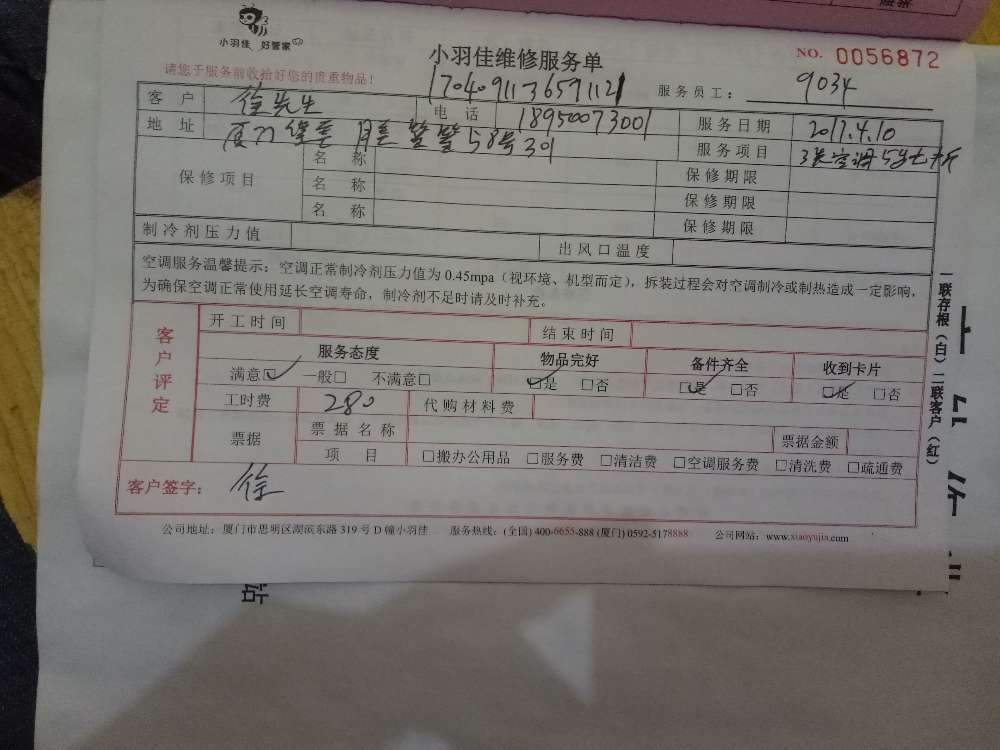 小羽佳 好管家
小羽佳维修服务单
NO. 0056872
请您于服务前收拾好您的贵重物品！
1704091136591121
服务员工： 9034
客 户 徐先生 电 话 18950073001 服务日期 2017.4.10
地 址 58号301 服务项目
保修项目
名 称 保修期限
名 称 保修期限
名 称 保修期限
制冷剂压力值 出风口温度
空调服务温馨提示：空调正常制冷剂压力值为0.45mpa（视环境、机型而定），拆装过程会对空调制冷或制热造成一定影响，
为确保空调正常使用延长空调寿命，制冷剂不足时请及时补充。
客户评定
开工时间 结束时间
服务态度 物品完好 备件齐全 收到卡片
满意☑ 一般□ 不满意□ ☑是 □否 ☑是 □否 ☑是 □否
工时费 280 代购材料费
票据 票据名称 票据金额
项 目 □搬办公用品 □服务费 □清洁费 □空调服务费 □清洗费 □疏通费
客户签字： 徐
公司地址：厦门市思明区湖滨东路319号D幢小羽佳 服务热线：(全国) 400-6655-888 (厦门) 0592-5178888 公司网站：www.xiaoyujia.com
一联存根（白）二联客户（红）
站